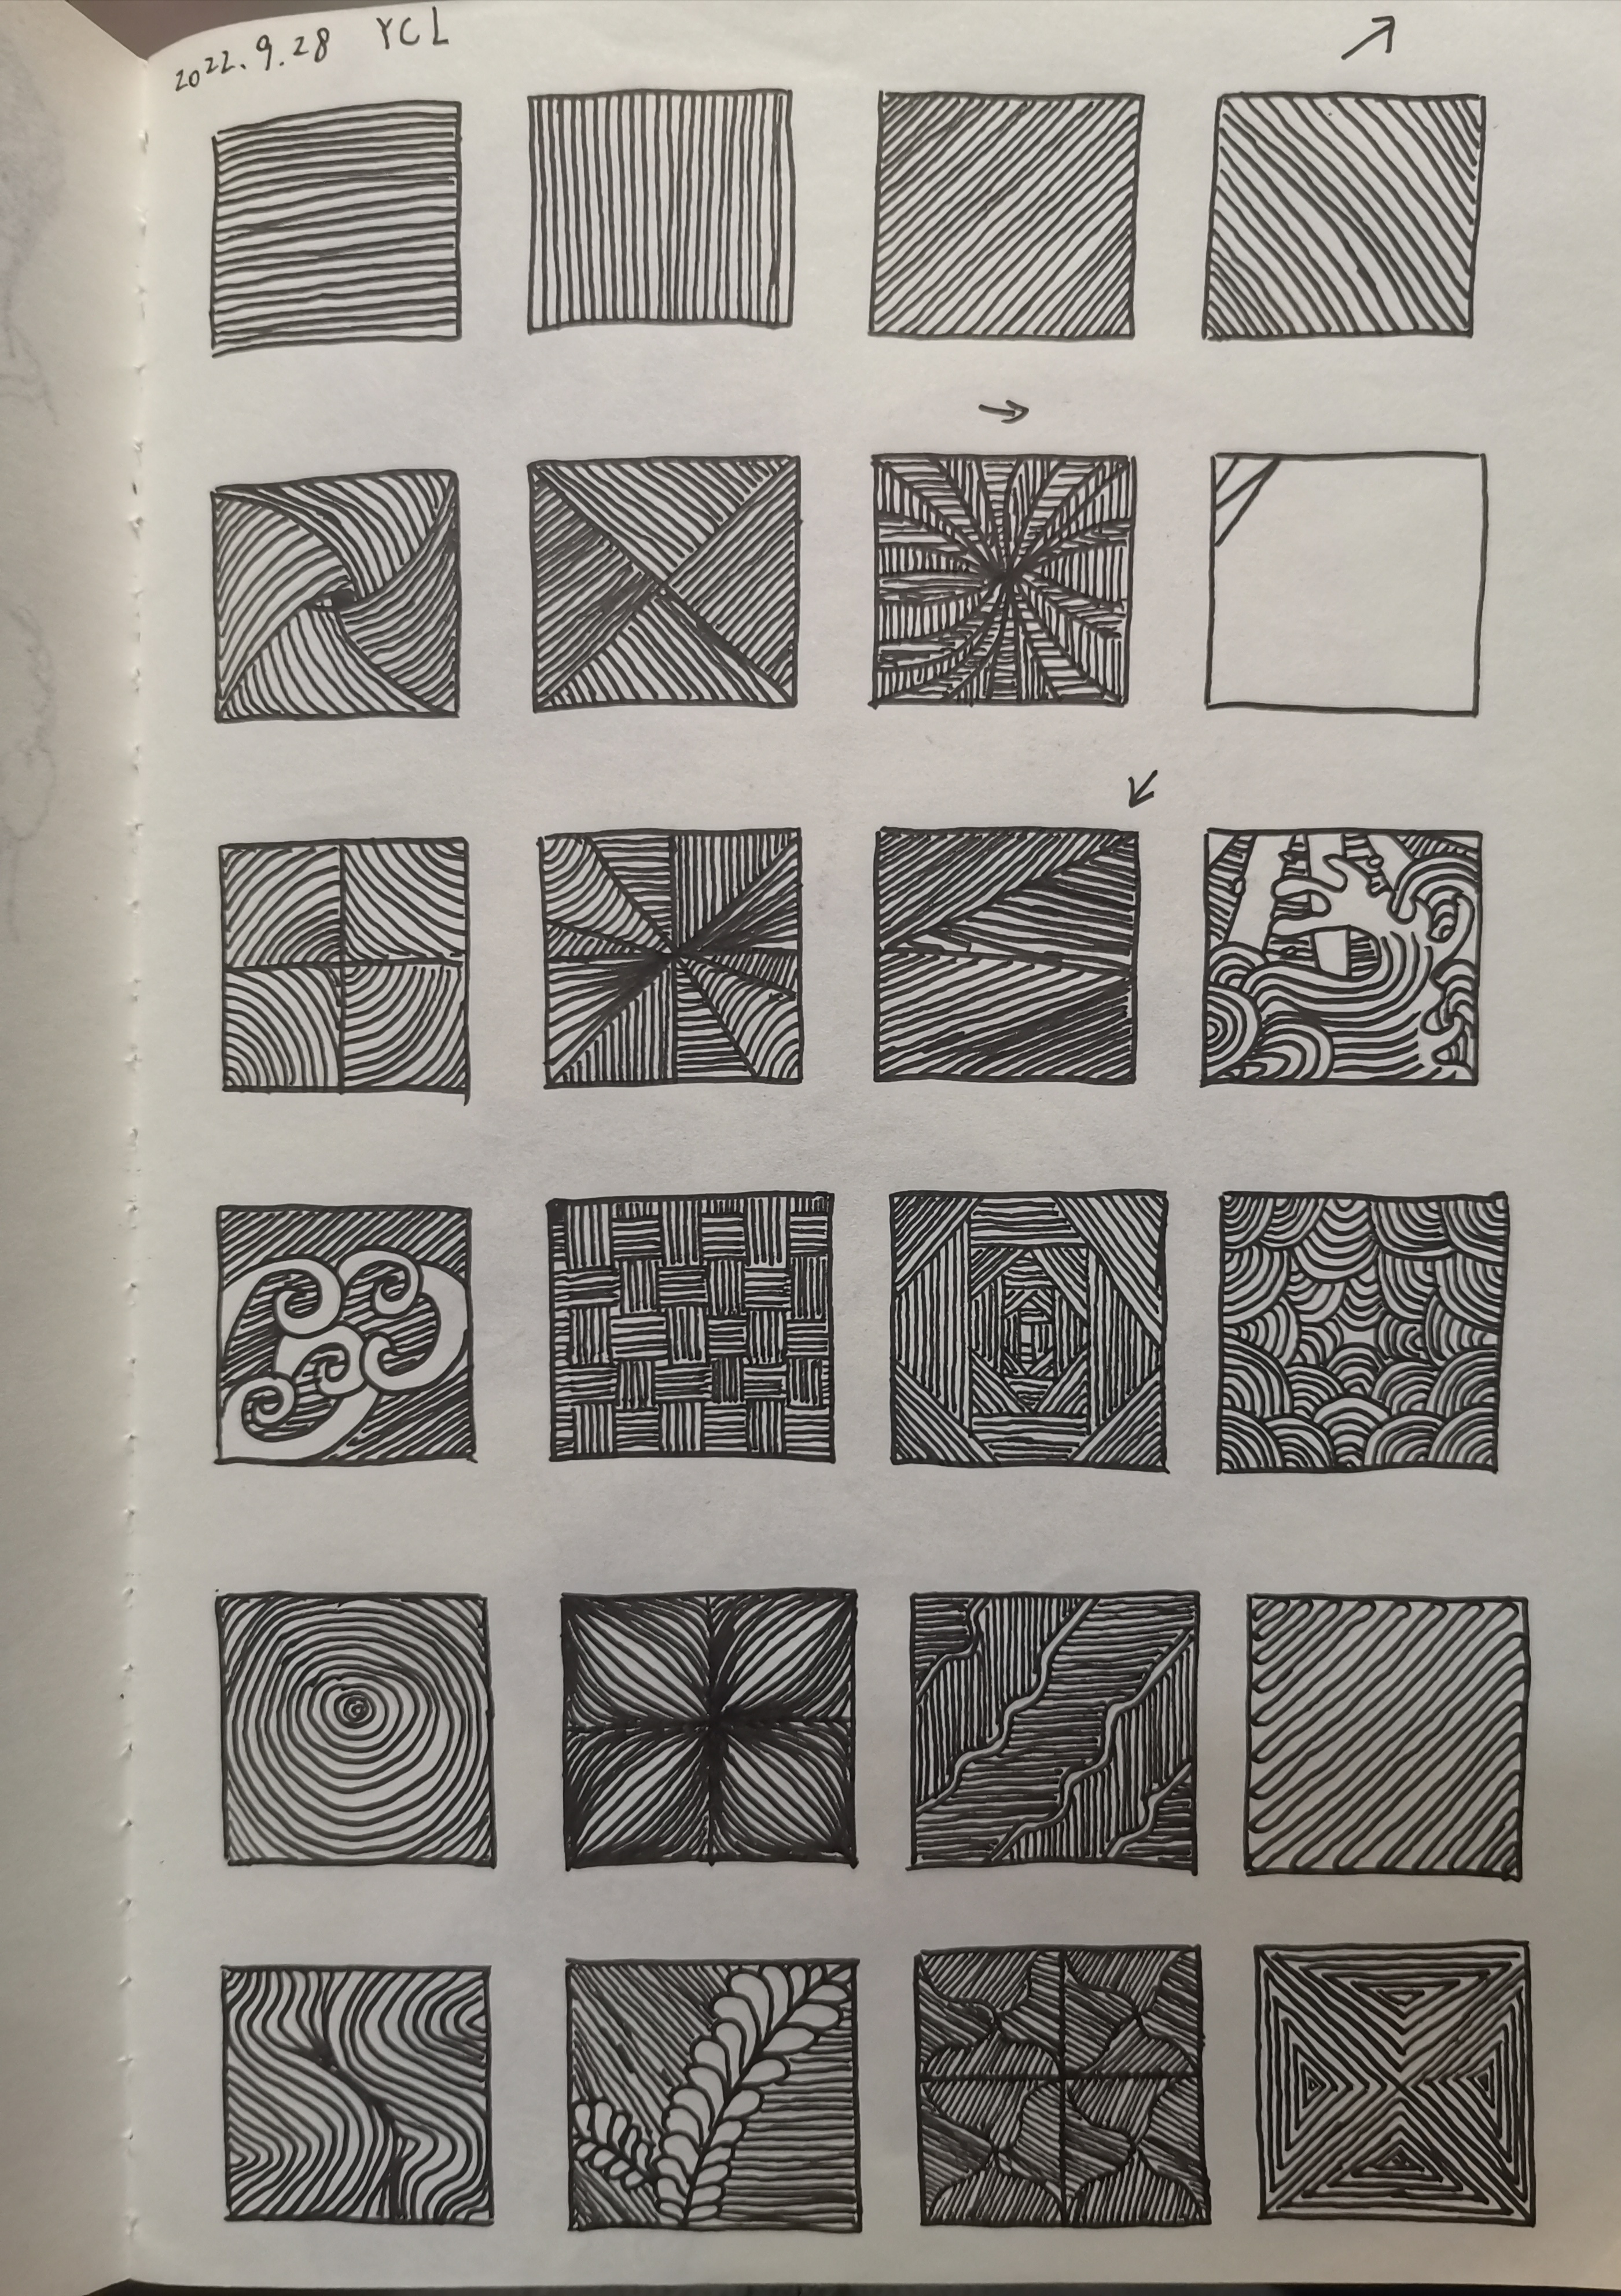 2022.9.28 YCL